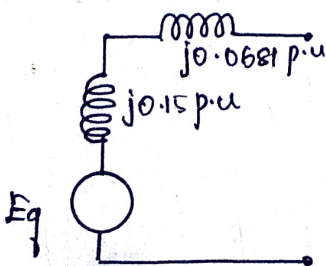 j0.0681 p.u
j0.15 p.u
Eg